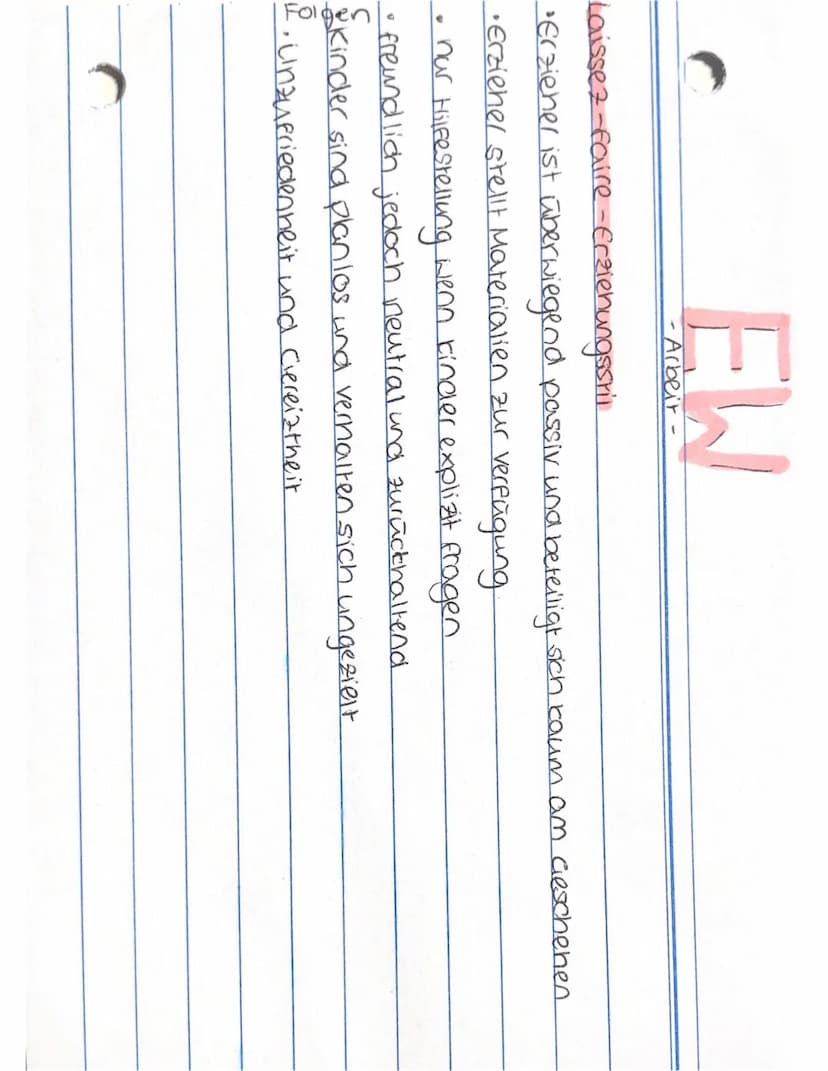 EW
- Arbeit -
Laissez-faire-Erziehungsstil
• Erzieher ist überwiegend passiv und beteiligt sich kaum am Geschehen
• Erzieher stellt Materialien zur Verfügung
• nur Hilfestellung wenn Kinder explizit fragen
• freundlich jedoch neutral und zurückhaltend
Kinder sind planlos und verhalten sich ungezielt
• Unzufriedenheit und Gereiztheit